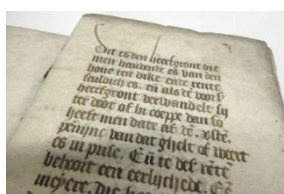 Dit es den heerlgront die
men haudende es van den
houe ten dike ende rente
sculdich es. en als tē voors
heerlgront verwandelt sij
ter doot of in coepe dan so
heeft men daer af dē. xstē.
peñync van dat ghelt of weert
es in prise. Eñ te des rēte
behoort een eerlychede. Eē